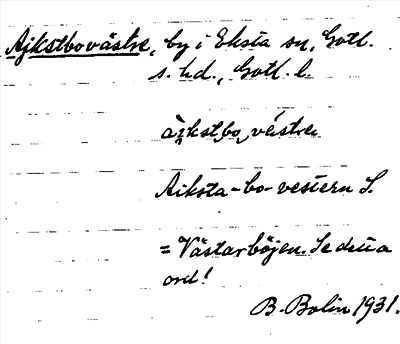 Ajkstbovästre, by i Eksta sn, Gotl.
s. hd., Gotl. l.
Aiksta-bo-vestern S.
= Västarböjen. Se detta
ord!
B. Bolin 1931.